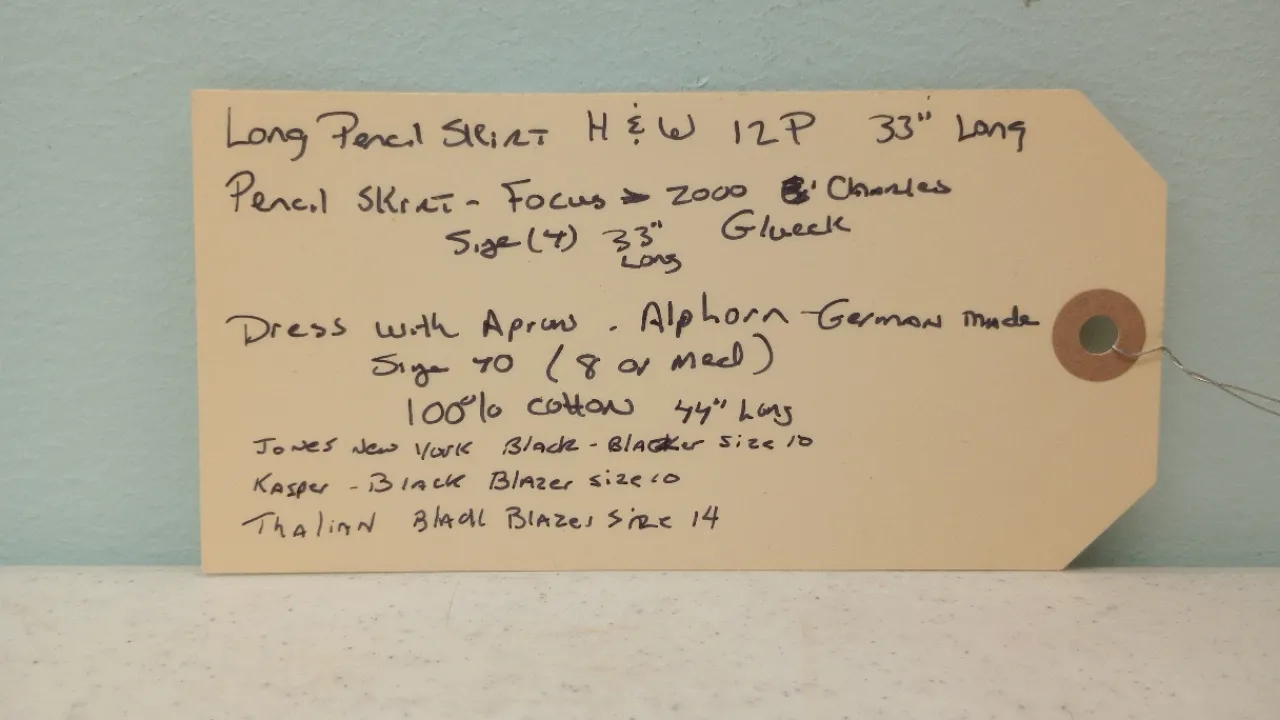 Long Pencil SKIRT H & W 12P 33" Long
Pencil SKIRT - Focus 2000 Charles
Size (4) 33" Glueck
Long
Dress with Apron . Alphorn - German made
Size 40 (8 or Med)
100% cotton 44" Long
Jones New York Black - Blacker size 10
Kasper - Black Blazer size 10
Thalian Black Blazer Size 14